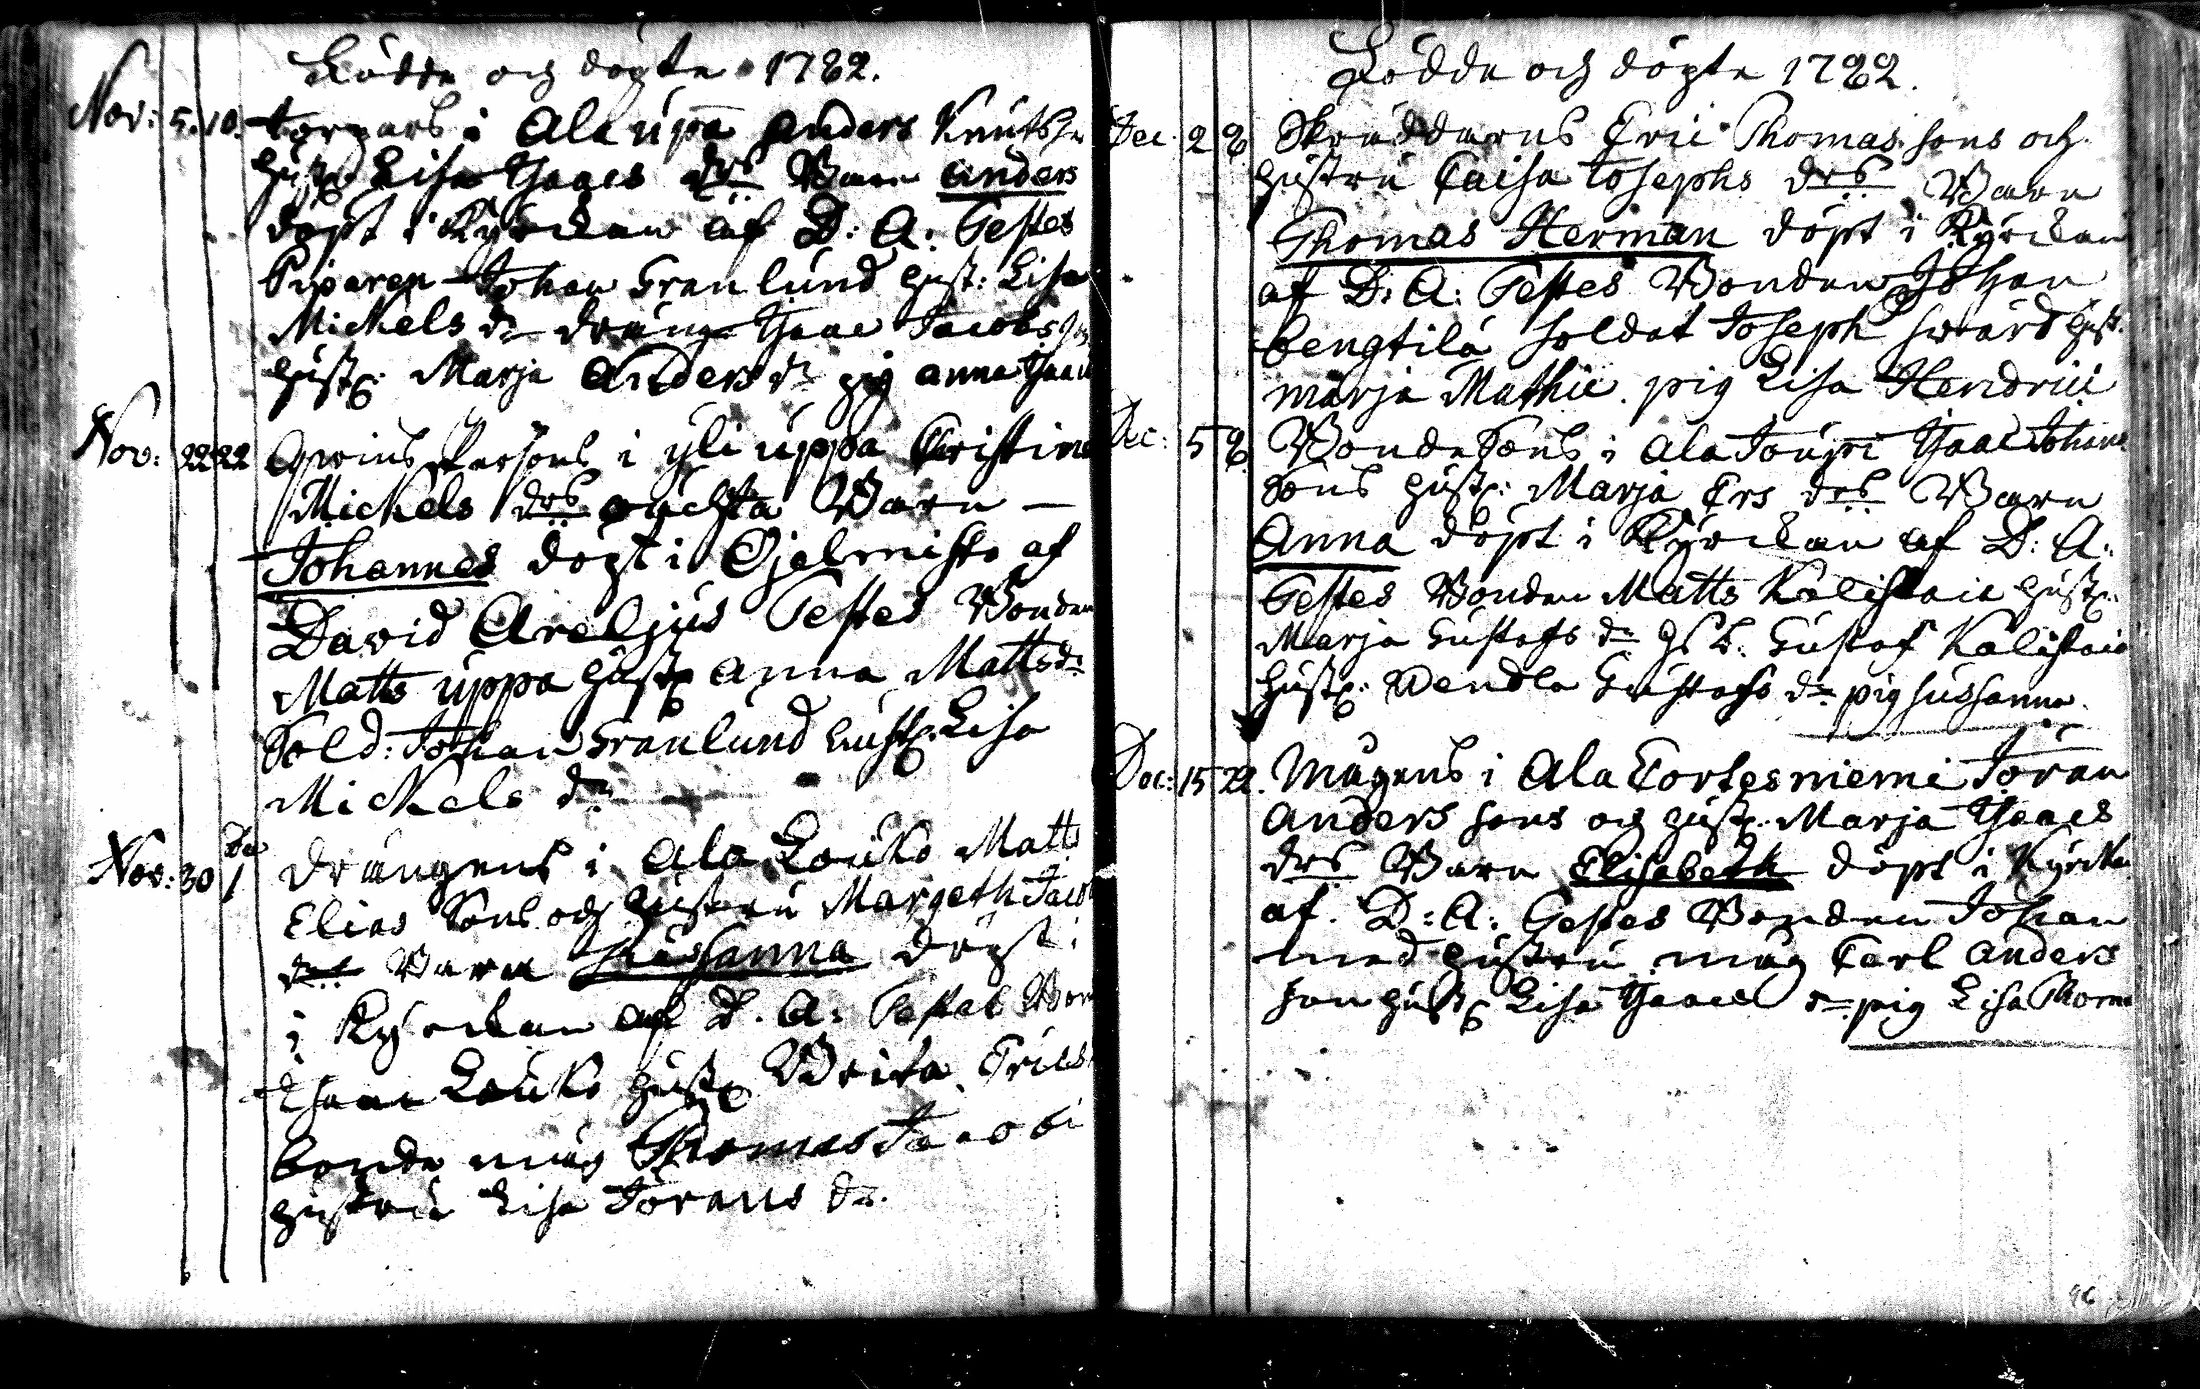 Födde och döpte 1782.
Nov: 5. 10. torpars i Ala uppa Anders Knutss
hustr Lisa Isaacs drs Barn Anders
döpt i Kyrckan af D: A: Testes
Johan Granlund hust: Lisa
Mickels dr dräng Isaac Jacobs
hustr: Marja Anders dr pig Anna Isaacs
Nov: 22 22 i yli uppa Christina
Mickels drs oächta Barn —
Johannes döpt i af
David Areljus Testes Bonden
Matts uppa hustr Anna Matts dr
Sold: Johan Granlund hustr: Lisa
Mickels dr
Nov: 30 De 1 drängens i Ala Louko Matts
Elias Sons och hustru Margeth Jacobs
drs Barn Sussanna döpt i
i Kyrckan af D. A: Testes Bon
Isaac Louko hustr Brita Erics
bonde måg Thomas Jacobi
hustru Lisa Jörans dr.
Födde och döpte 1782.
Dec. 2 8 Skräddarns Eric Thomas sons och
hustru Caisa Josephs drs Barn
Thomas Herman döpt i Kyrckan
af D: A: Testes Bonden Johan
bengtilä soldat Joseph swärd hust.
marja Mathie. pig Lisa Hendrici
Dec: 5 8 Bonde Sons i Ala Joupi Isaac Johans
Sons hustr: Marja Ers drs Barn
Anna döpt i Kyrckan af D: A:
Testes Bonden Matts Kalistaia hustr:
Marja Gustafs dr Gustaf Kalistaia
hustr: Wendla Gustafs dr pig sussanna.
Dec: 15 22. Mågens i Ala Cortesniemi Jöran
Anders sons och hustr: Marja Isaacs
drs Barn Elisabeth döpt i Kyrcka
af. D: A: Testes Bonden Johan
med hustru måg Carl Anders
son hustr Lisa Isaacs dr pig Lisa Thoma
96